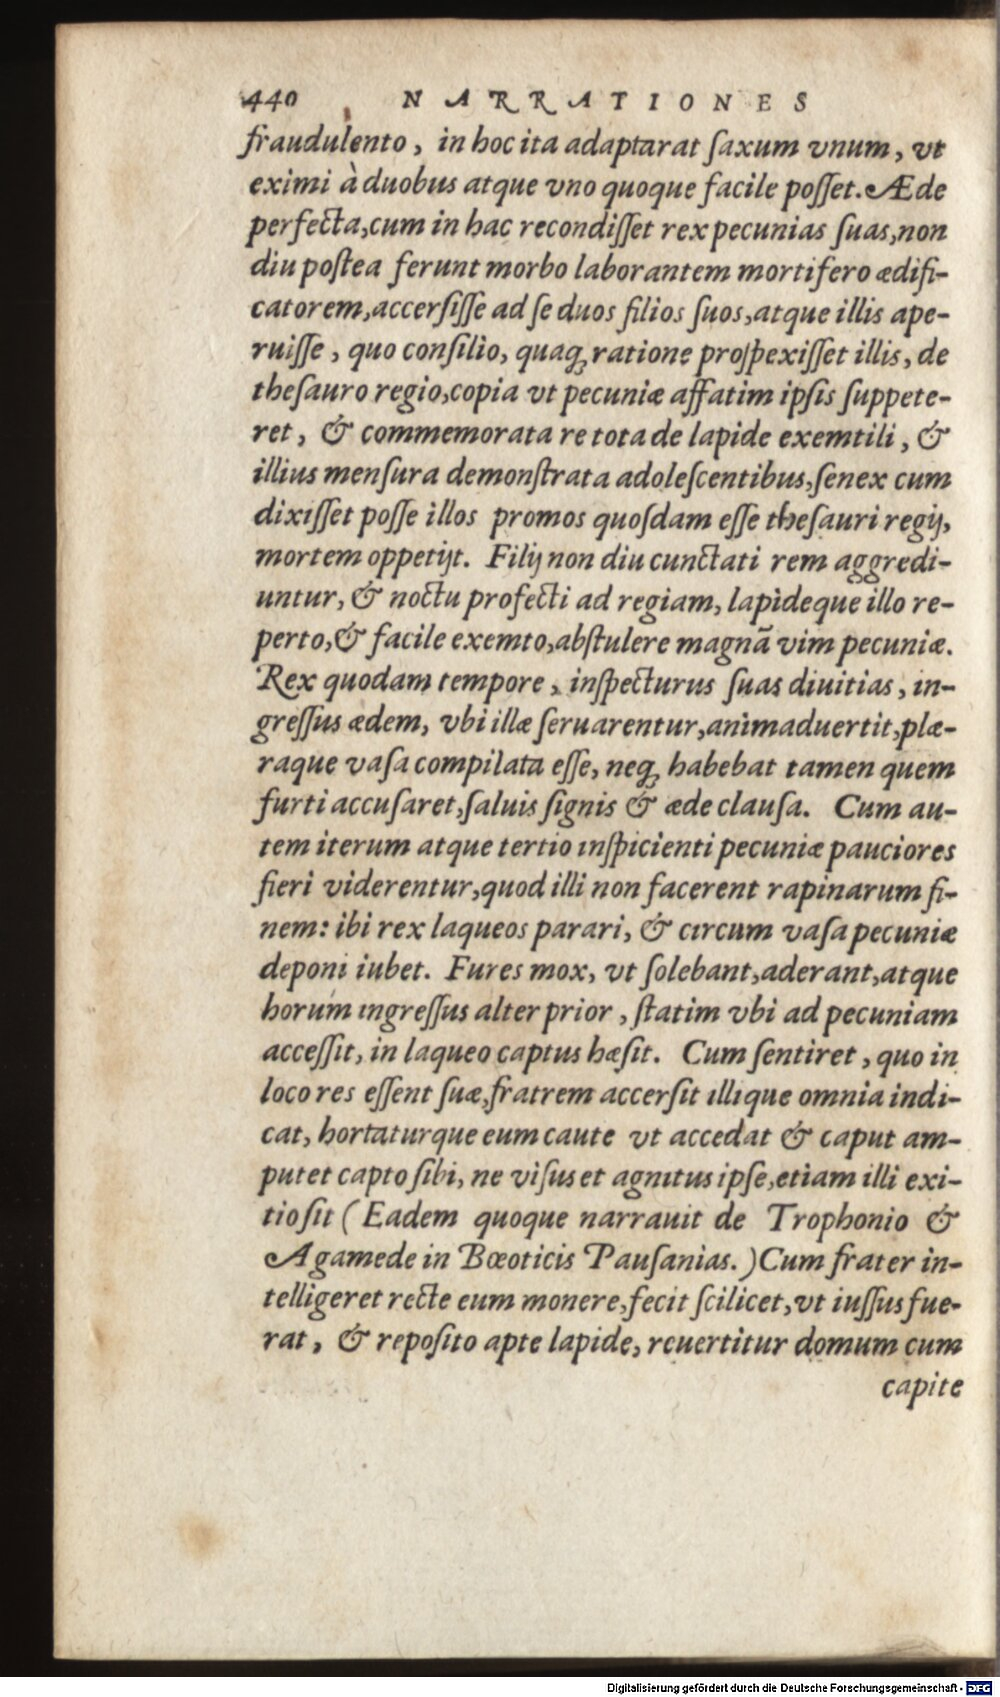 440 NARRATIONES
fraudulento, in hoc ita adaptarat ſaxum vnum, vt
eximi à duobus atque vno quoque facile poſſet. Æde
perfecta, cum in hac recondiſſet rex pecunias ſuas, non
diu poſtea ferunt morbo laborantem mortifero ædifi-
catorem, accerſiſſe ad ſe duos filios ſuos, atque illis ape-
ruiſſe, quo conſilio, quaq; ratione proſpexiſſet illis, de
theſauro regio, copia vt pecuniæ affatim ipſis ſuppete-
ret, & commemorata re tota de lapide exemtili, &
illius menſura demonſtrata adoleſcentibus, ſenex cum
dixiſſet poſſe illos promos quoſdam eſſe theſauri regij,
mortem oppetijt. Filij non diu cunctati rem aggredi-
untur, & noctu profecti ad regiam, lapideque illo re-
perto, & facile exemto, abſtulere magnã vim pecuniæ.
Rex quodam tempore, inſpecturus ſuas diuitias, in-
greſſus ædem, vbi illæ ſeruarentur, animaduertit, plæ-
raque vaſa compilata eſſe, neq; habebat tamen quem
furti accuſaret, ſaluis ſignis & æde clauſa. Cum au-
tem iterum atque tertio inſpicienti pecuniæ pauciores
fieri viderentur, quod illi non facerent rapinarum fi-
nem: ibi rex laqueos parari, & circum vaſa pecuniæ
deponi iubet. Fures mox, vt ſolebant, aderant, atque
horum ingreſſus alter prior, ſtatim vbi ad pecuniam
acceſſit, in laqueo captus hæſit. Cum ſentiret, quo in
loco res eſſent ſuæ, fratrem accerſit illique omnia indi-
cat, hortaturque eum caute vt accedat & caput am-
putet capto ſibi, ne viſus et agnitus ipſe, etiam illi exi-
tio ſit (Eadem quoque narrauit de Trophonio &
Agamede in Bœoticis Pauſanias.) Cum frater in-
telligeret recte eum monere, fecit ſcilicet, vt iuſſus fue-
rat, & repoſito apte lapide, reuertitur domum cum
capite
Digitalisierung gefördert durch die Deutsche Forschungsgemeinschaft - DFG